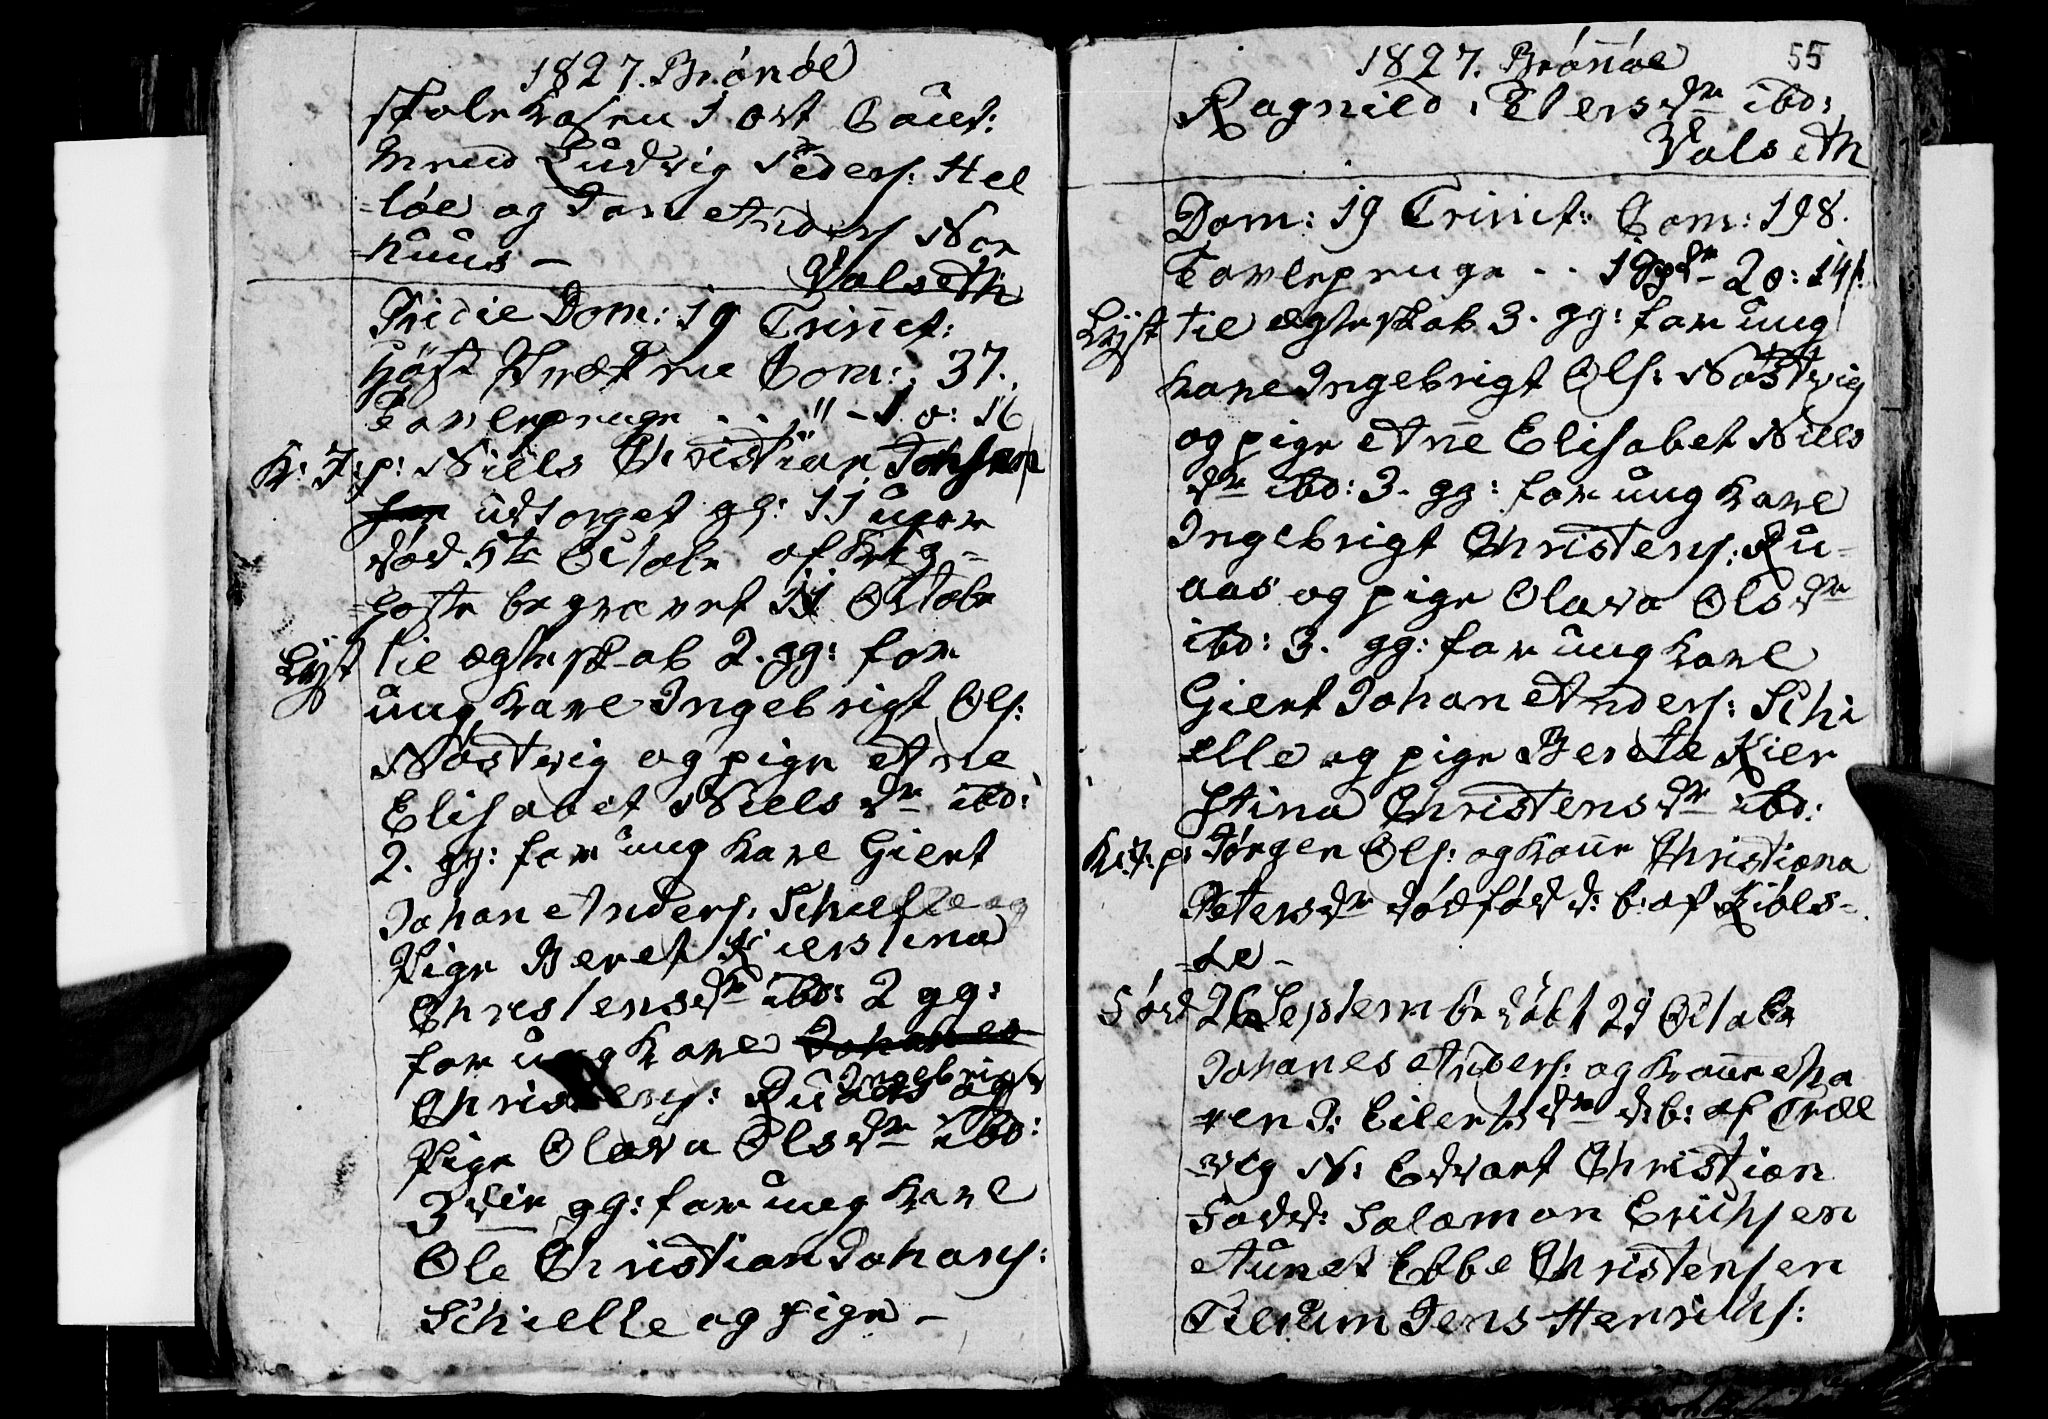 1827. Brönöe
skolekasen 1 ort Caut:
med Ludvig Peders: Hel
=löe og Tore Anders Nor
=huus -
Valseth
Tridie Dom: 19 Trinet:
höst Com: 37.
Tavlepenge . . " - 1 o: 16
K: J: p: Niels Christian Johsen
udtorget gl: 11 uger
död 5te Octobr af Kig=
=hoste begravet 11 Octobr
Lyst til ægteskab 2. gg: for
ung karl Ingebrigt Ols:
Nöstvig og pige Ane
Elisabet Niels dr ibd:
2. gg: for ung karl Giert
Johan Anders: Schielle og
Pige Beret Kierstina
Christensdr ibd: 2 gg:
for ung karl Johanes
Ingebrigt
Christens: Ruaas og
Pige Olava Olsdr ibd:
3die gg: for ung karl
Ole Christian Johans:
Schielle og pige -
1827. Brönöe 55
Ragnild Petersdr ibd:
Valseth
Dom: 19 Trinet: Com: 198.
Tavlepenge . . 2 o: 14 s.
Lyst til ægteskab 3. gg: for ung
karl Ingebrigt Ols: Nöstvig
og pige Ane Elisabet Niels
dr ibd: 3. gg: for ung karl
Ingebrigt Christens: Ru-
aas og pige Olava Olsdr
ibd: 3. gg: for ung karl
Giert Johan Anders: Schi
elle og pige Berete Kier
stina Christensdr ibd:
K: J: p: Jörgen Ols: og kone Christiana
Petersdr dödföd d: b: af Kiöls-
=öe -
Föd 26 Septembr döbt 21 Octobr
Johanes Anders: og kone Ma
ren P: Eilertsdr d: b: af Træl
=vig N: Edvart Christian
Fadd: Salamon Erichsen
Aunet Ebbe Christensen
Tilrum Jens Henrichs: